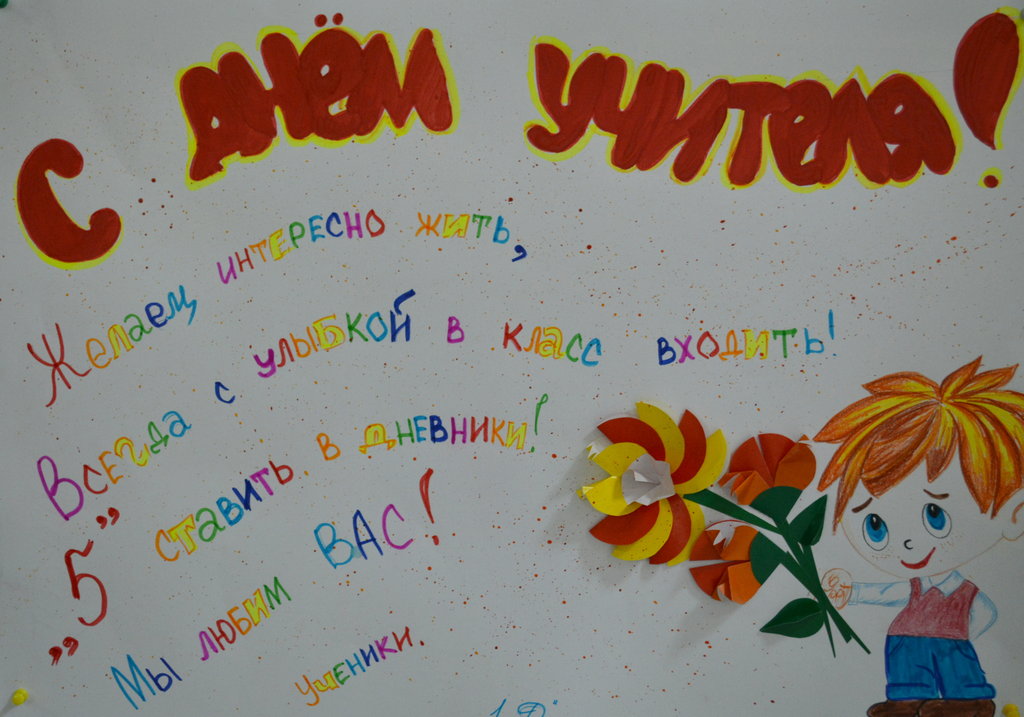 С ДНЁМ УЧИТЕЛЯ!
Желаем интересно жить,
Всегда с улыбкой в класс входить!
„5” ставить в дневники!
Мы любим ВАС!
Ученики.